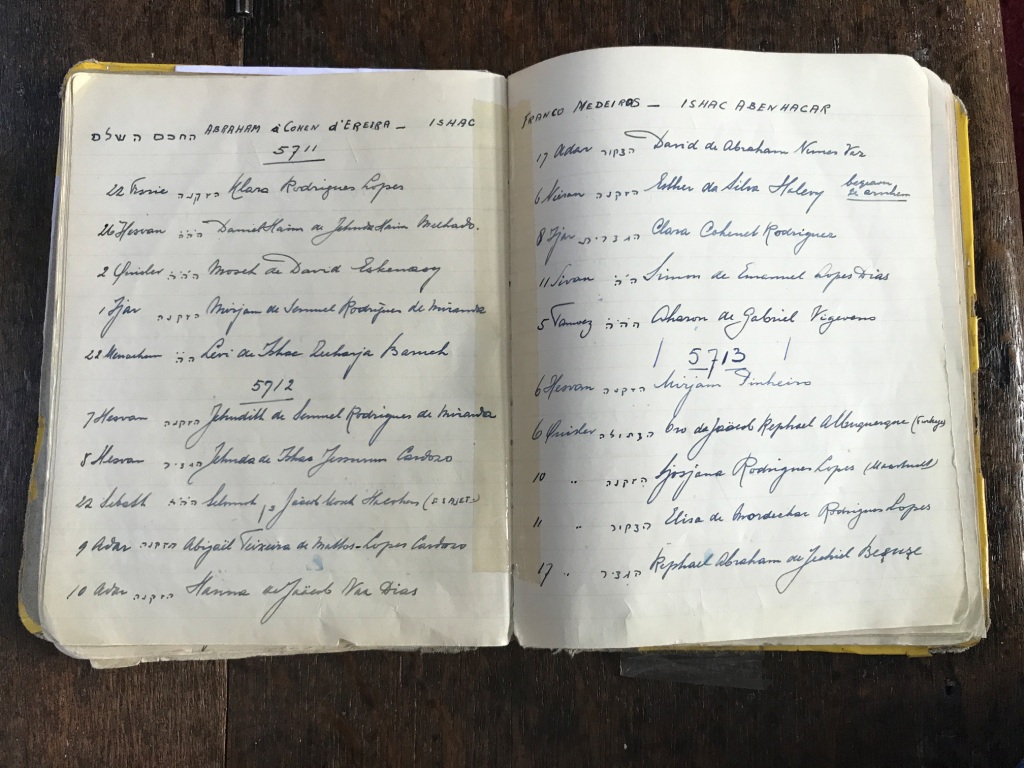 החכם השלם ABRAHAM à COHEN d'EREIRA — ISHAC
5711
22 Tissie הזקנה Klara Rodrigues Lopes
26 Hesvan הה״ה Daniel Haim de Jehuda Haim Machado.
2 Quisler הה״ה Moseh de David Eskenasy
1 Ijar הזקנה Mirjam de Semuel Rodrigues de Miranda
22 Menachem הה״ Levi de Ishac Zecharja Baruch
5712
7 Hesvan הזקנה Jehudith de Semuel Rodrigues de Miranda
8 Hesvan הגביר Jehuda de Ishac Jessurun Cardozo
22 Sebath הה״ה Selomoh Jaäcob
9 Adar הזקנה Abigaïl Teixeira de Mattos-Lopes Cardozo
10 Adar הזקנה Hanna de Jaäcob Vaz Dias
FRANCO MEDEIROS — ISHAC ABENHACAR
17 Adar הבקור David de Abraham Nunes Vaz
6 Nisan הזקנה Esther da Silva Halevy begraven te Arnhem
8 Ijar הגברית Clara Cohenet Rodrigues
11 Sivan הה״ה Simon de Emanuel Lopes Dias
5 Tamoez הה״ה Aharon de Gabriel Vigeveno
5713
6 Hesvan הזקנה Mirjam Pinheiro
6 Quisler הבתולה de Jaäcob Rephael Albuquerque
10 " הזקנה Sosjana Rodrigues Lopes
11 " הבקור Elisa de Mordechai Rodrigues Lopes
17 " הגביר Rephael Abraham de Jechiel